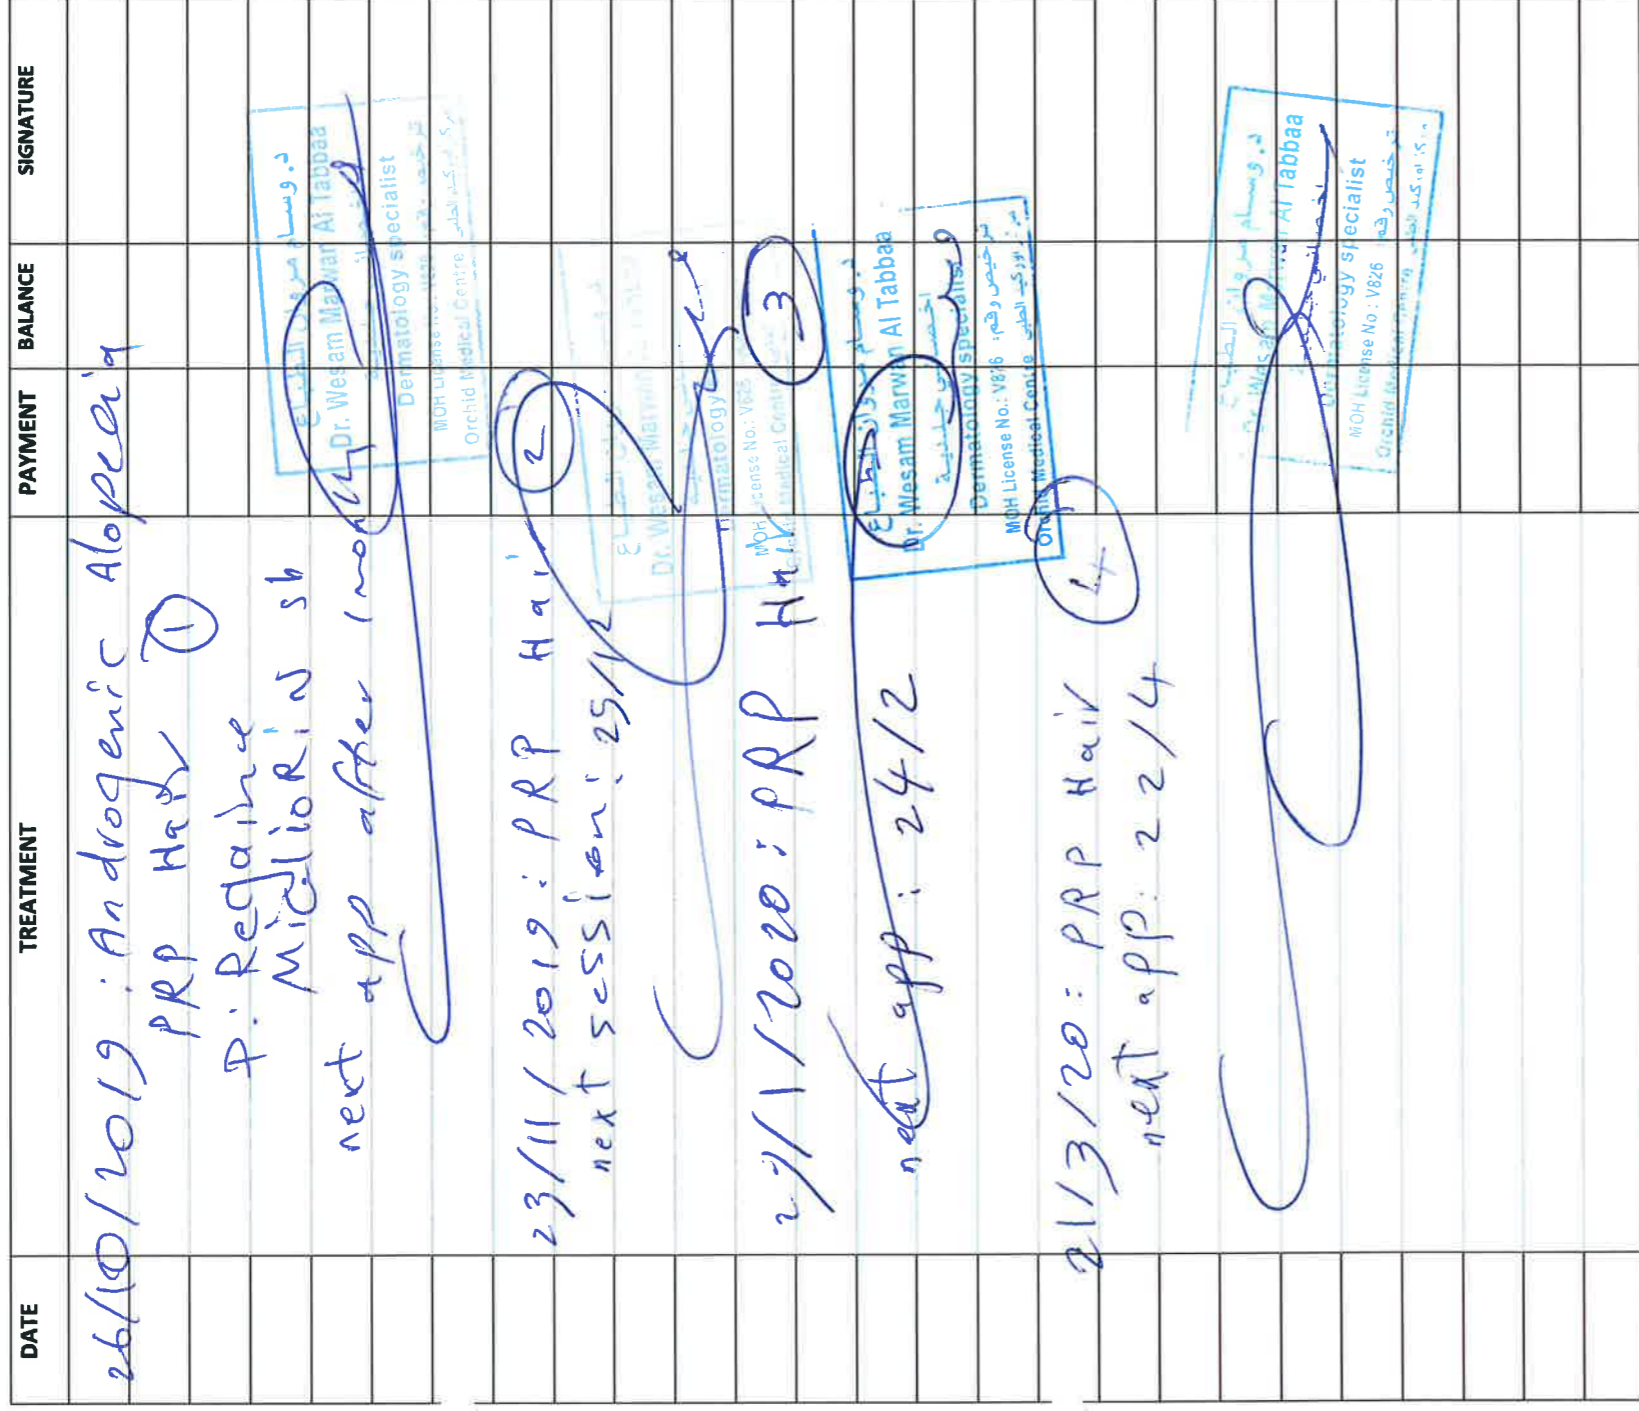 DATE TREATMENT PAYMENT BALANCE SIGNATURE
26/10/2019 : Androgenic Alopecia
PRP Hair ①
P: Regaine
MiglioRiN sh
next app after 1 monthly
د. وسام مروان الطباع
Dr. Wesam Marwan Al Tabbaa
Dermatology specialist
MOH License No.: V826
Orchid Medical Centre
23/11/2019 : PRP Hair ②
next session : 25/12
Dr. Wesam Marwan
Dermatology
MOH License No.: V826
Medical Centre
/1/2020 : PRP Hair ③
next app : 24/2
د. وسام مروان الطباع
Dr. Wesam Marwan Al Tabbaa
اخصائي جلدية
Dermatology specialist
MOH License No.: V826 ترخيص رقم:
Orchid Medical Centre مركز اوركيد الطبي
21/3/20 : PRP Hair ④
next app : 22/4
د. وسام مروان الطباع
Dr. Wesam Marwan Al Tabbaa
اخصائي جلدية
Dermatology specialist
MOH License No.: V826 ترخيص رقم
Orchid Medical Centre مركز اوركيد الطبي